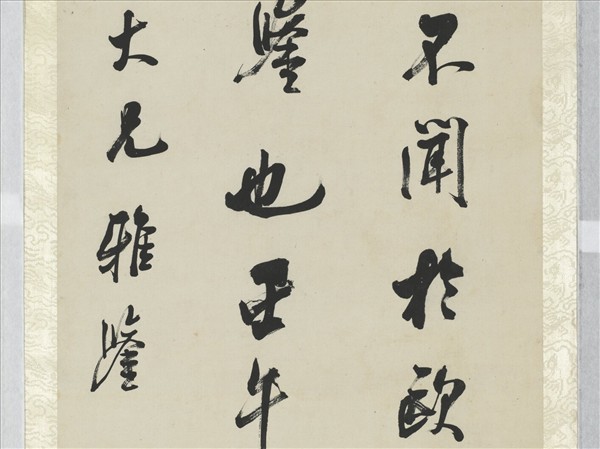 不聞於歐
鑒也壬午
大兄雅鑒